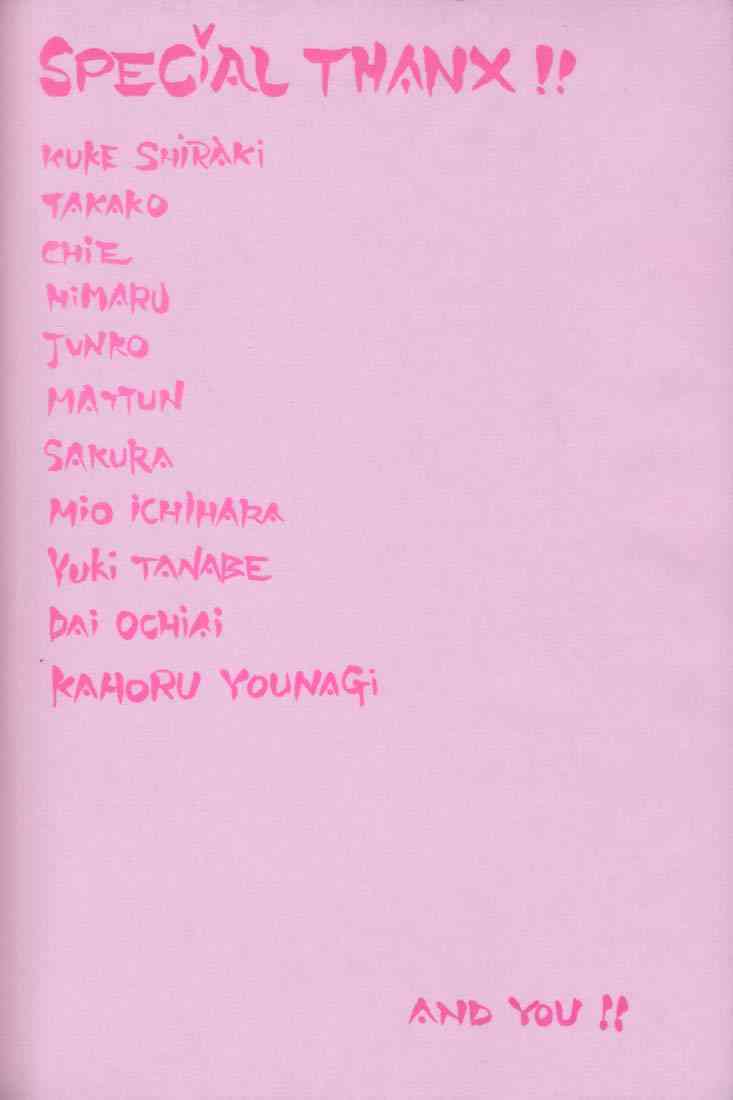 SPECiAL THANX !!
KUKE SHiRAKi
TAKAKO
CHiE
HiMARU
JUNKO
MATTUN
SAKURA
MiO iCHiHARA
YUKi TANABE
DAi OCHiAi
KAHORU YOUNAGi
AND YOU !!